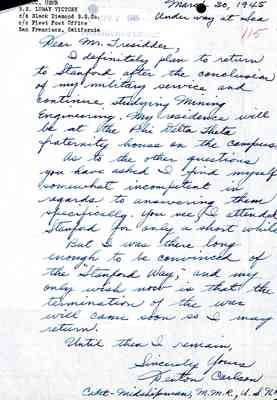 USMS
S.S. LURAY VICTORY
c/o Black Diamond S.S.Co.
c/o Fleet Post Office
San Francisco, California
March 30, 1945
Under way at Sea
115
Dear Mr. Tresidder,
I definitely plan to return
to Stanford after the conclusion
of my military service and
continue studying Mining
Engineering. My residence will
be at the Phi Delta Theta
fraternity house on the campus.
As to the other questions
you have asked I find myself
somewhat incompetent in
regards to answering them
specifically. You see I attended
Stanford for only a short while
But I was there long
enough to be convinced of
the "Stanford Way," and my
only wish now is that the
termination of the war
will come soon so I may
return.
Until then I remain,
Sincerely Yours
Carlson
Cadet-Midshipman, M.M.R., U.S.N.